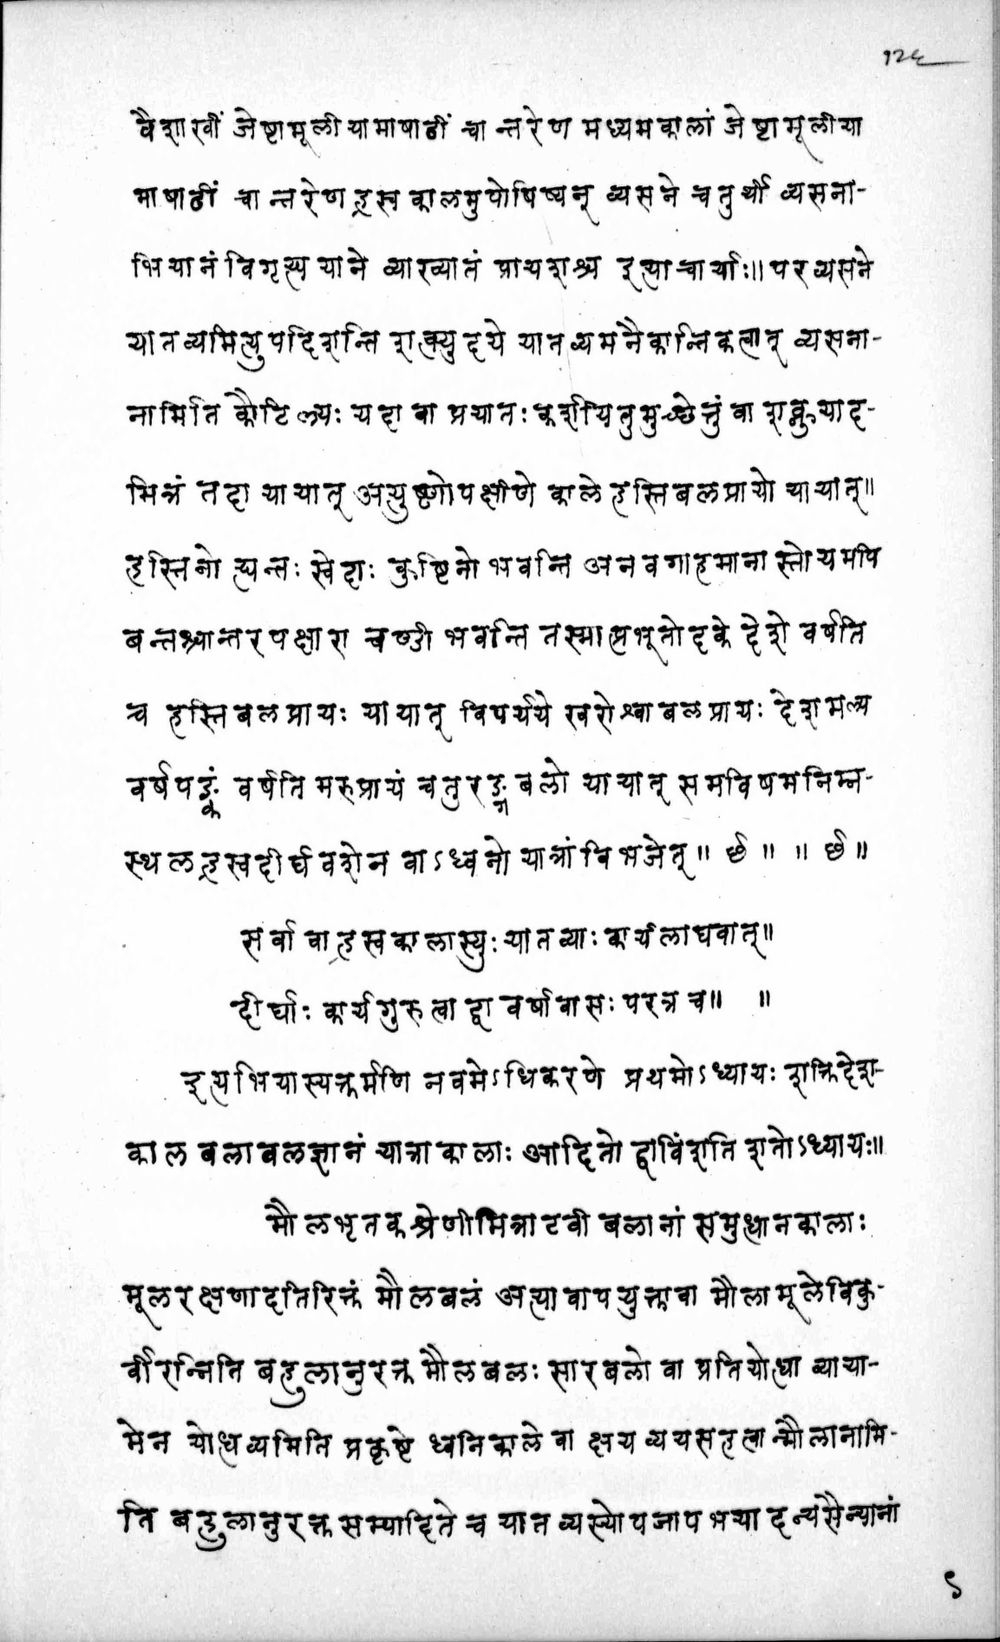 १२६
वैशाखीं जेष्टामूलीयामाषाढीं चान्तरेण मध्यमकालां जेष्टामूलीया
माषाढीं चान्तरेण ह्रस्वकालमुपोषिष्यन् व्यसने चतुर्थी व्यसना-
भियानं विगृह्य याने व्याख्यातं प्रायशश्च इत्याचार्याः॥ परव्यसने
यातव्यमित्युपदिशन्ति शक्त्युदये यातव्यमनैकान्तिकत्वात् व्यसना-
नामिति कौटिल्यः यदा वा प्रयातः कर्शयितुमुच्छेत्तुं वा शक्नुयाद-
मित्रं तदा यायात् अत्युष्णोपक्षीणे काले हस्तिबलप्रायो यायात्॥
हस्तिनो त्यन्तः स्वेदाः कुष्टिनो भवन्ति अनवगाहमाना स्तोयमपि
बन्तश्चान्तरपक्षारा चण्डी भवन्ति तस्मात्प्रभूतोदके देशे वर्षति
च हस्तिबलप्रायः यायात् विपर्यये खरोश्वाबलप्रायः देशमल्प
वर्षपङ्कं वर्षति मरुप्रायं चतुरङ्गबलो यायात् समविषमनिम्न-
स्थलह्रस्वदीर्घवशेन वाऽध्वनो यात्रां विभजेत्॥ छ॥ ॥ छ॥
सर्वा वा ह्रस्वकालास्युः यातव्याः कार्यलाघवात्॥
दीर्घाः कार्यगुरुत्वाद्वा वर्षावासः परत्र च॥ ॥
इत्यभियास्यत्कर्मणि नवमेऽधिकरणे प्रथमोऽध्यायः शक्तिदेश-
काल बलाबलज्ञानं यात्राकालाः आदितो द्वाविंशति शतोऽध्यायः॥
मौलभृतकश्रेणीमित्राटवी बलानां समुत्थानकालाः
मूलरक्षणादतिरिक्तं मौलबलं अत्यावापयुक्ता वा मौला मूले विकु-
र्वीरन्निति बहुलानुरक्त मौलबलः सारबलो वा प्रतियोत्धा व्याया-
मेन योत्धव्यमिति प्रकृष्टे ध्वनि काले वा क्षयव्ययसहत्वान्मौलानामि-
ति बहुलानुरक्तसम्पादिते च यातव्यस्योपजापभयादन्यसैन्यानां
९